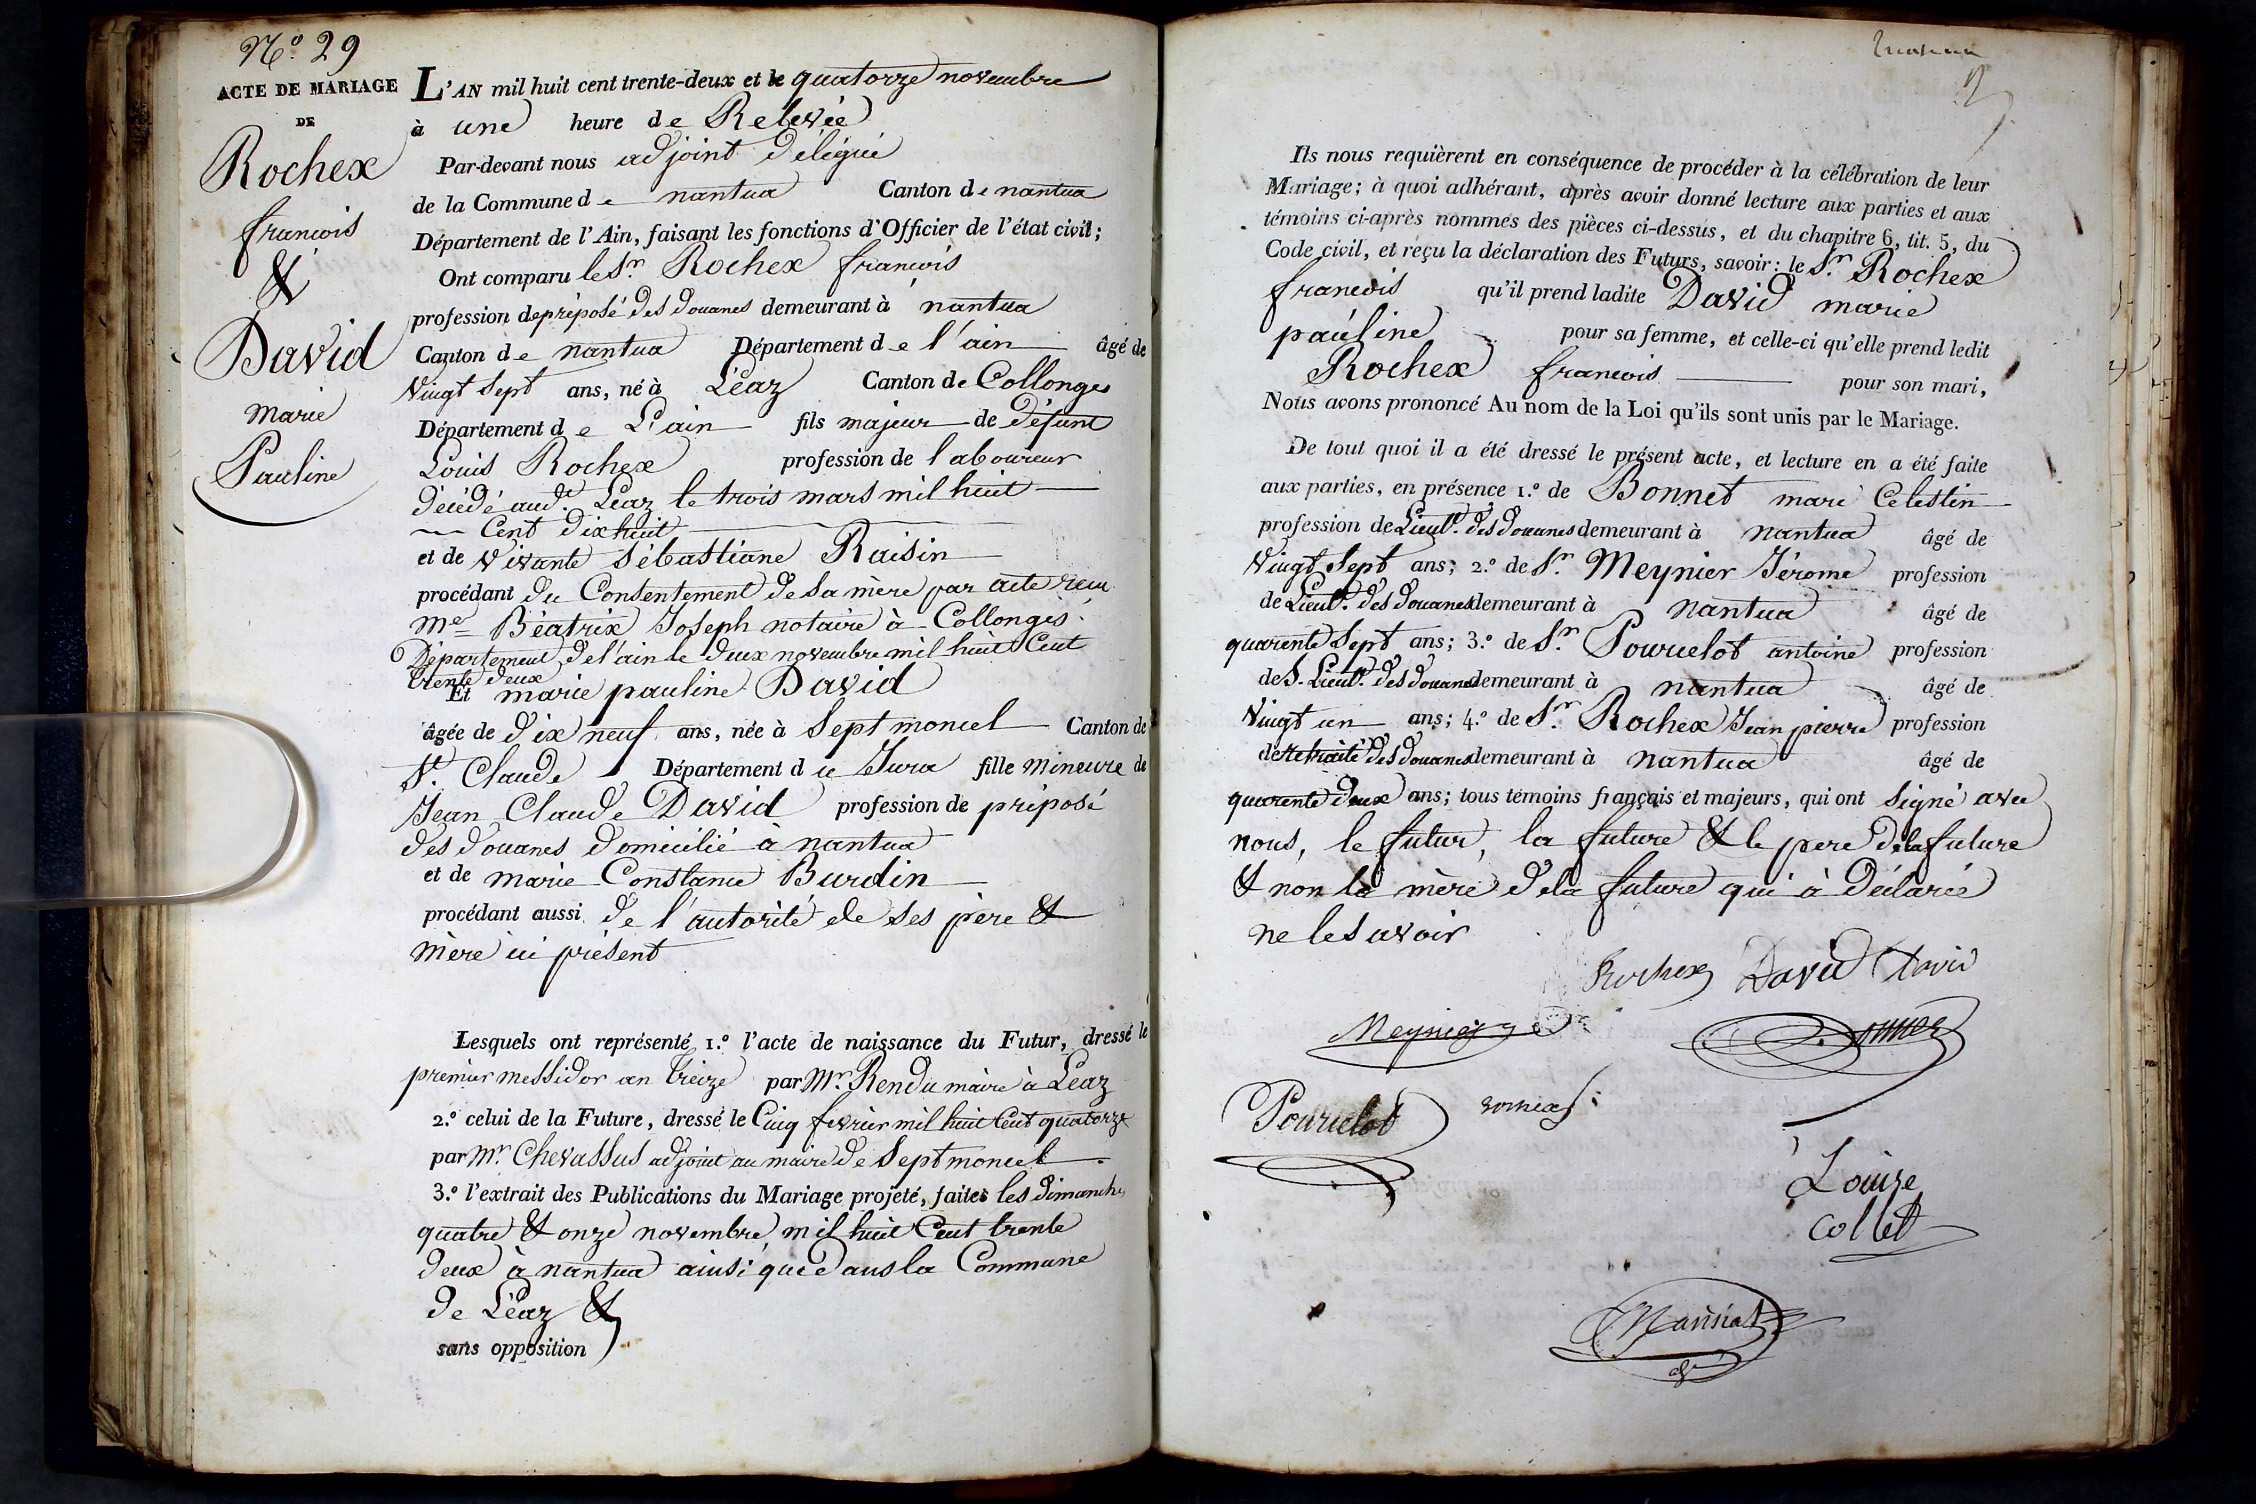 N.o 29
ACTE DE MARIAGE
DE
Rochex
francois
&
David
marie
Pauline
L'AN mil huit cent trente-deux et le quatorze novembre
à une heure de Relevée
Par-devant nous adjoint délégué
de la Commune de nantua Canton de nantua
Département de l'Ain, faisant les fonctions d'Officier de l'état civil;
Ont comparu le Sr. Rochex francois
profession de préposé des douanes demeurant à nantua
Canton de nantua Département de l'ain âgé de
Vingt Sept ans, né à Léaz Canton de Collonges
Département de L'ain fils majeur de défunt
Louis Rochex profession de laboureur
décédé aud.t Léaz le trois mars mil huit
Cent dix huit
et de vivante Sébastiane Raisin
procédant du Consentement de sa mère par acte recu
me Béatrix Joseph notaire à Collonges
Département de l'ain le deux novembre mil huit Cent
trente deux
Et marie pauline David
âgée de dix neuf ans, née à Septmoncel Canton de
St. Claude Département du Jura fille mineure de
Jean Claude David profession de préposé
des douanes domicilié à nantua
et de marie Constance Burdin
procédant aussi de l'autorité de ses père &
mère ici présent
Lesquels ont représenté 1.º l'acte de naissance du Futur, dressé le
premier messidor an treize par Mr. Rendu maire à Léaz
2.º celui de la Future, dressé le Cinq fevrier mil huit Cent quatorze
par Mr. Chevassus adjoint au maire de Septmoncel
3.º l'extrait des Publications du Mariage projeté, faites les dimanches
quatre & onze novembre mil huit Cent trente
deux à nantua ainsi que dans la Commune
de Léaz &
sans opposition
Ils nous requièrent en conséquence de procéder à la célébration de leur
Mariage; à quoi adhérant, après avoir donné lecture aux parties et aux
témoins ci-après nommés des pièces ci-dessus, et du chapitre 6, tit. 5, du
Code civil, et reçu la déclaration des Futurs, savoir: le Sr. Rochex
francois qu'il prend ladite David marie
pauline pour sa femme, et celle-ci qu'elle prend ledit
Rochex francois pour son mari,
Nous avons prononcé Au nom de la Loi qu'ils sont unis par le Mariage.
De tout quoi il a été dressé le présent acte, et lecture en a été faite
aux parties, en présence 1.º de Bonnet marie Celestin
profession de Lieut. des douanes demeurant à nantua âgé de
Vingt Sept ans; 2.º de Sr. Meynier Jérome profession
de Lieut. des douanes demeurant à nantua âgé de
quarente Sept ans; 3.º de Sr. Pourcelot antoine profession
de S. Lieut. des douanes demeurant à nantua âgé de
Vingt un ans; 4.º de Sr. Rochex Jean pierre profession
de retraité des douanes demeurant à nantua âgé de
quarente deux ans; tous témoins français et majeurs, qui ont signé avec
nous, le futur, la future & le pere de la future
& non la mère de la future qui à déclarée
ne le savoir
Rochex David David
Meynier
Pourcelot rochex
Louize
Collet